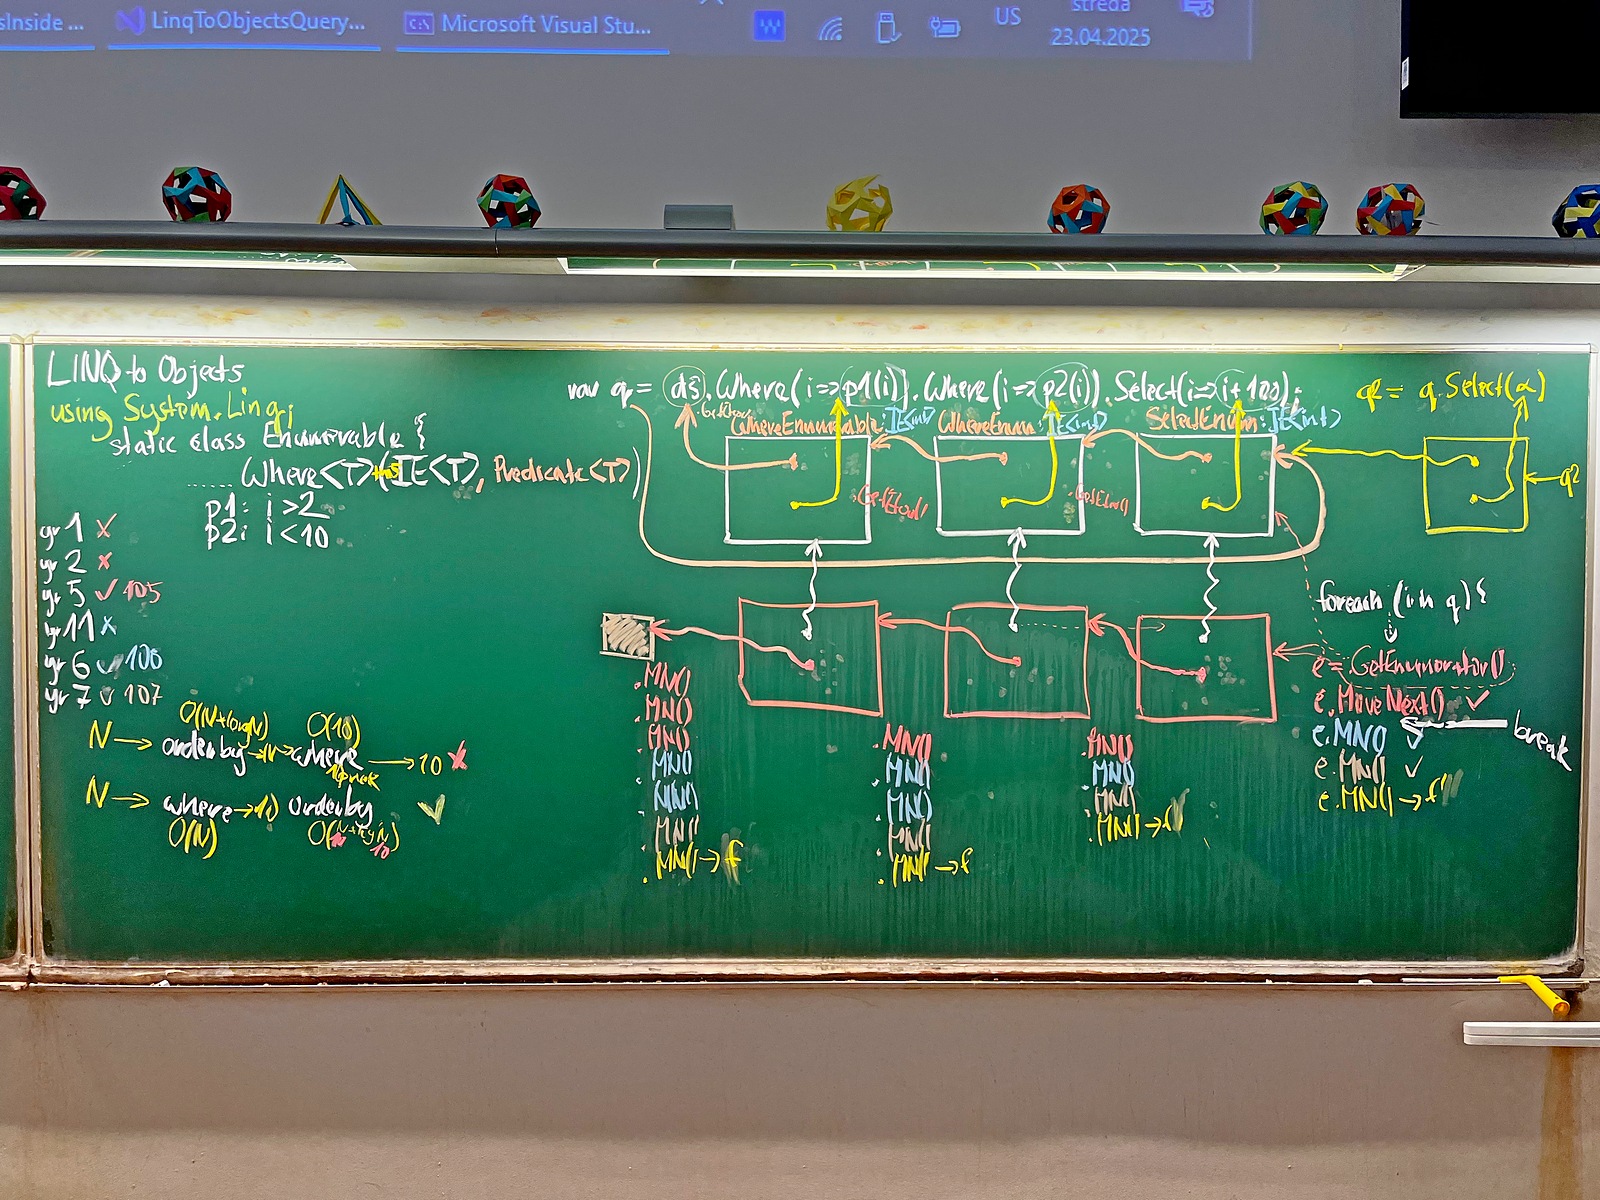 sInside ...
LinqToObjectsQuery...
Microsoft Visual Stu...
US
streda
23.04.2025
LINQ to Objects
using System.Linq;
static class Enumerable {
...... Where<T>(this IE<T>, Predicate<T>)
p1: i >2
p2: i <10
yr 1 x
yr 2 x
yr 5 ✓ 105
yr 11 x
yr 6 ✓ 106
yr 7 ✓ 107
O(N*logN) O(10)
N → orderby → N → where → 10 x
N → where → 10 orderby ✓
O(N)
var q = ds.Where(i=>p1(i)).Where(i=>p2(i)).Select(i=>i+100);
WhereEnumerable:IE<int> WhereEnum:IE<int> SelectEnum:IE<int>
q2 = q.Select(α)
q2
foreach (i in q) {
e = GetEnumerator()
e.MoveNext() ✓
break
e.MN() ✓
e.MN() ✓
e.MN() → f
.MN()
.MN()
.MN()
.MN()
.MN()
.MN()
.MN() → f
.MN()
.MN()
.MN()
.MN()
.MN() → f
.MN()
.MN()
.MN()
.MN() → f